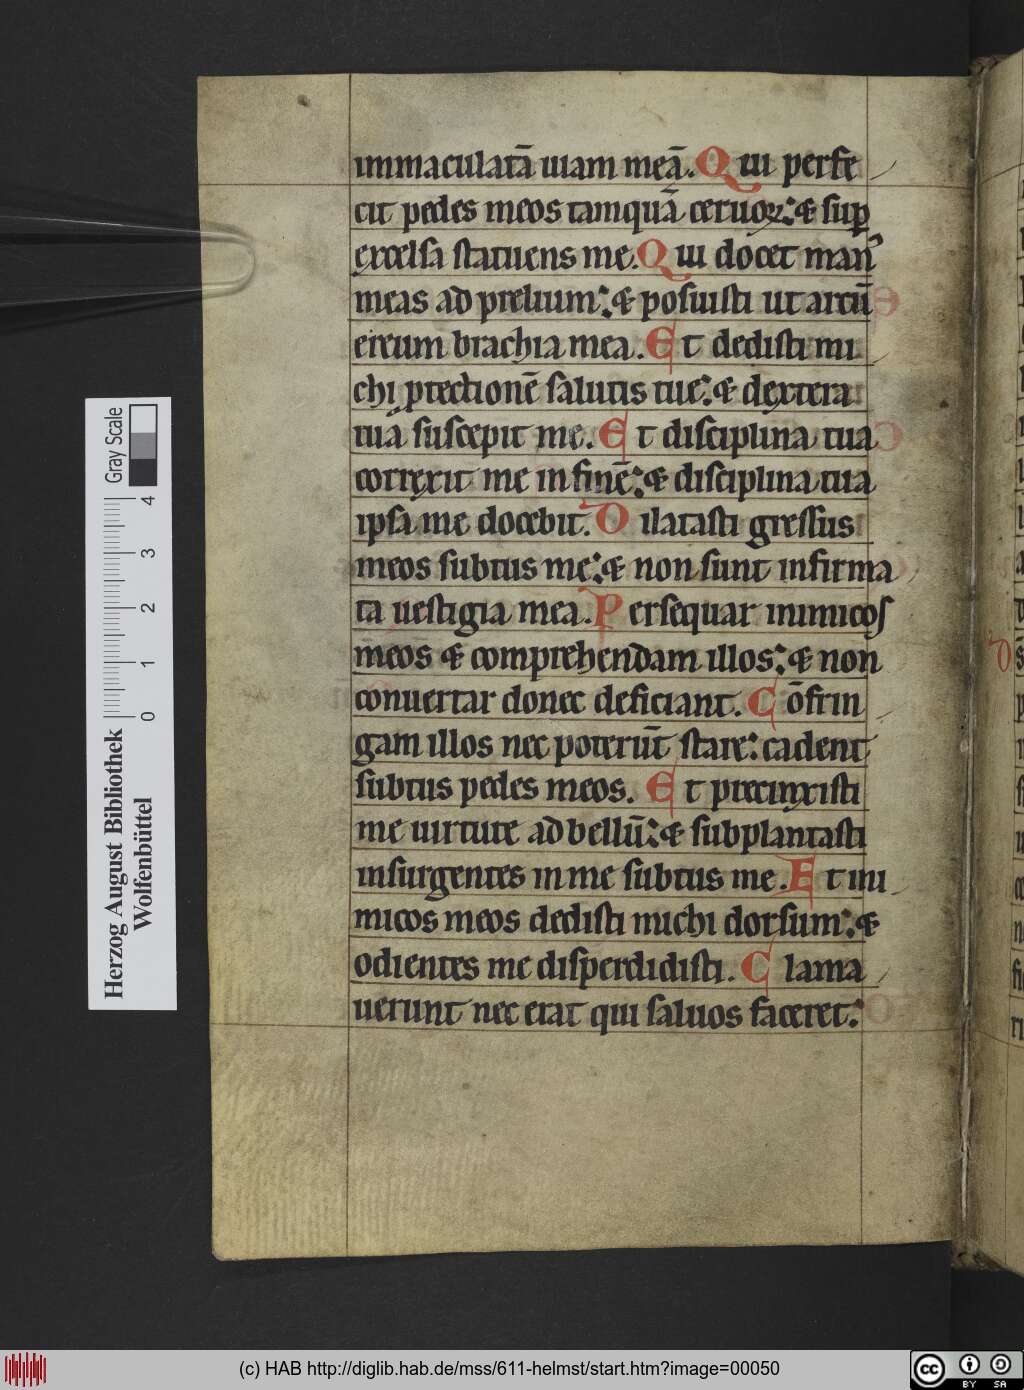 immaculatā uiam meā. Qui perfe
cit pedes meos tamquā ceruoꝝ: & suꝑ
excelsa statuens me. Qui docet manꝰ
meas ad prelium: & posuisti ut arcū
ereum brachia mea. Et dedisti mi
chi ꝓtectionē salutis tue: & dextera
tua suscepit me. Et disciplina tua
correxit me in finē: & disciplina tua
ipsa me docebit. Dilatasti gressus
meos subtus me: & non sunt infirma
ta uestigia mea. Persequar inimicos
meos & comprehendam illos: & non
conuertar donec deficiant. Cōfrin
gam illos nec poterūt stare: cadent
subtus pedes meos. Et precinxisti
me uirtute ad bellū: & subplantasti
insurgentes in me subtus me. Et ini
micos meos dedisti michi dorsum: &
odientes me disperdidisti. Clama
uerunt nec erat qui saluos faceret:
Gray Scale
0 1 2 3 4
Herzog August Bibliothek
Wolfenbüttel
(c) HAB http://diglib.hab.de/mss/611-helmst/start.htm?image=00050
cc BY SA